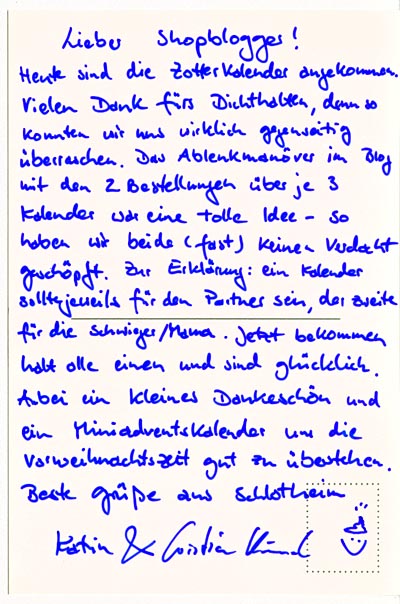 Lieber Shopblogger!
Heute sind die Zotterkalender angekommen.
Vielen Dank fürs Dichthalten, denn so
konnten wir uns wirklich gegenseitig
überraschen. Das Ablenkmanöver im Blog
mit den 2 Bestellungen über je 3
Kalender war eine tolle Idee - so
haben wir beide (fast) keinen Verdacht
geschöpft. Zur Erklärung: ein Kalender
sollte jeweils für den Partner sein, der zweite
für die Schwieger/Mama. Jetzt bekommen
halt alle einen und sind glücklich.
Anbei ein kleines Dankeschön und
ein Miniadventskalender um die
Vorweihnachtszeit gut zu überstehen.
Beste Grüße aus Schlotheim
Katrin & Christian